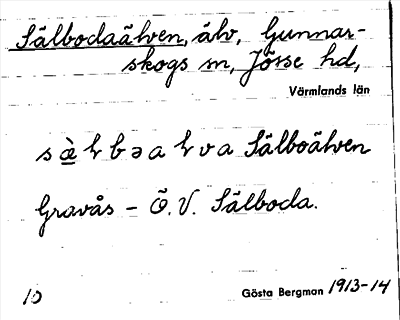 Sälbodaälven, älv, Gunnar-
skogs sn, Jösse hd,
Värmlands län
Sälboälven
Gravås - Ö. V. Sälboda.
10
Gösta Bergman 1913-14